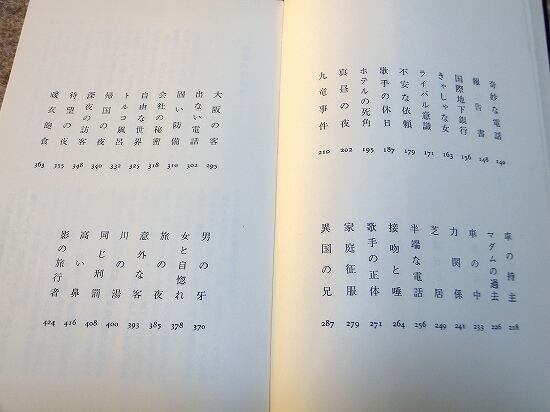 奇妙な電話 140
報告書 148
国際地下銀行 156
きゃしゃな女 163
ライバル意識 171
不安な依頼 179
歌手の休日 187
ホテルの死角 195
真昼の夜 202
九竜事件 210
車の持主 218
マダムの過去 226
車の中 233
力関係 241
芝居 249
半端な電話 256
接吻と唾 264
歌手の正体 271
家庭征服 279
異国の兄 287
大阪の客 295
出ない電話 302
固い防備 310
会社の秘密 318
自由な世界 325
トルコ風呂 332
帰国の夜 340
深夜の訪客 348
待望の夜 355
暖衣飽食 363
男の牙 370
女と自惚れ 378
旅の夜 385
意外な客 393
川の湯 400
同じ刑罰 408
高い鼻 416
影の旅行者 424